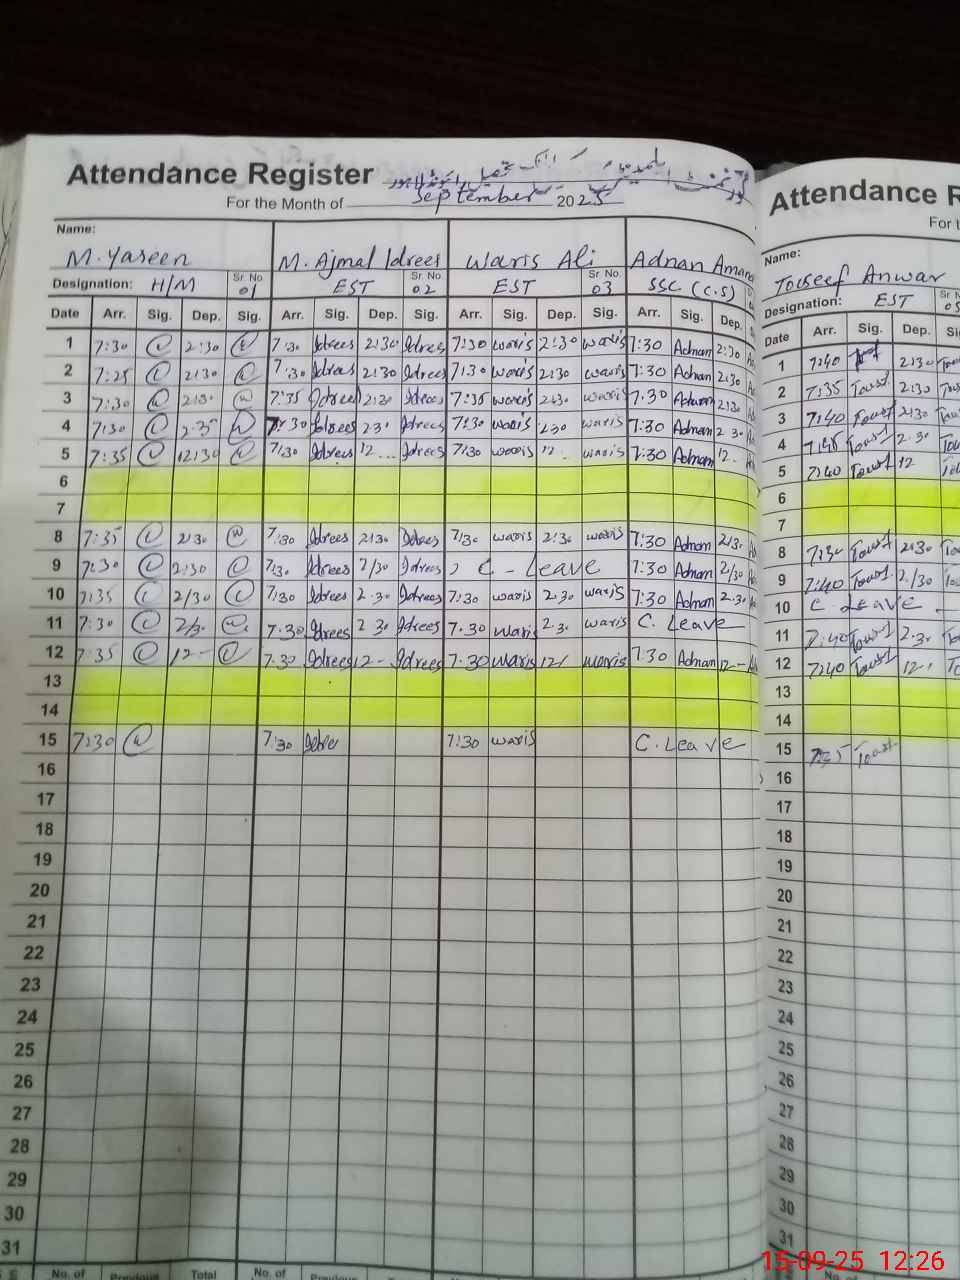 Attendance Register
For the Month of September 2025
Name:
M. Yaseen M. Ajmal Idrees Waris Ali Adnan
Designation: H/M Sr. No. 01 EST Sr. No. 02 EST Sr. No. 03 SSC (C.S)
Date Arr. Sig. Dep. Sig. Arr. Sig. Dep. Sig. Arr. Sig. Dep. Sig. Arr. Sig. Dep.
1 7:30 2:30 7:30 Idrees 2:30 Idrees 7:30 waris 2:30 waris 7:30 Adnan 2:30
2 7:25 2:30 7:30 Idrees 2:30 Idrees 7:30 waris 2:30 waris 7:30 Adnan 2:30
3 7:30 2:30 7:35 Idrees 2:30 Idrees 7:35 waris 2:30 waris 7:30 Adnan 2:30
4 7:30 2:35 7:30 Idrees 2:30 Idrees 7:30 waris 2:30 waris 7:30 Adnan 2:30
5 7:35 12:30 7:30 Idrees 12 Idrees 7:30 waris 12 waris 7:30 Adnan 12
6
7
8 7:35 2:30 7:30 Idrees 2:30 Idrees 7:30 waris 2:30 waris 7:30 Adnan 2:30
9 7:30 2:30 7:30 Idrees 2/30 Idrees C - Leave 7:30 Adnan 2/30
10 7:35 2/30 7:30 Idrees 2:30 Idrees 7:30 waris 2:30 waris 7:30 Adnan 2:30
11 7:30 2/30 7:30 Idrees 2:30 Idrees 7:30 waris 2:30 waris C. Leave
12 7:35 12 - 7:30 Idrees 12 - Idrees 7:30 waris 12/ waris 7:30 Adnan 12 -
13
14
15 7:30 7:30 7:30 waris C. Leave
16
17
18
19
20
21
22
23
24
25
26
27
28
29
30
31
No. of Previous Total No. of Previous Total No. of
Attendance R
For t
Name:
Touseef Anwar
Designation: EST Sr N 05
Date Arr. Sig. Dep.
1 7:40 2:30
2 7:35 2:30
3 7:40 2:30
4 7:45 2:30
5 7:40 12
6
7
8 7:30 2:30
9 7:40 2/30
10 C. Leave
11 7:40 2:30
12 7:40 12
13
14
15
16
17
18
19
20
21
22
23
24
25
26
27
28
29
30
31
15-09-25 12:26